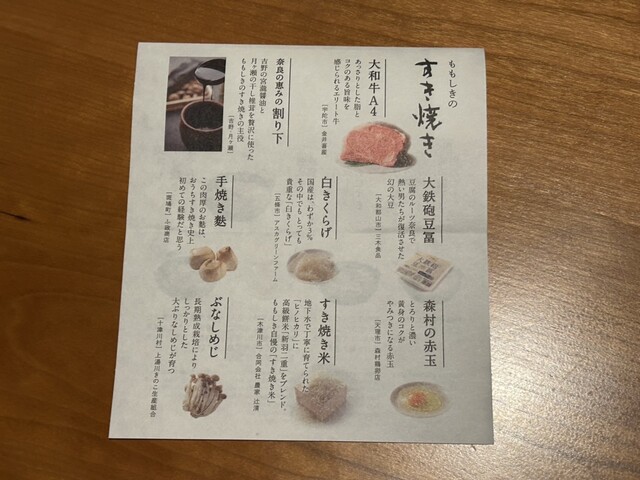 ももしきの
すき焼き
大和牛A4
あっさりとした脂と
コクのある旨味を
感じられるエリート牛
［宇陀市］金井畜産
奈良の恵みの割り下
吉野の宮滝醤油と
月ヶ瀬の干し椎茸を贅沢に使った
ももしきのすき焼きの主役
［吉野・月ヶ瀬］
大鉄砲豆冨
豆腐のルーツ奈良で
熱い男たちが復活させた
幻の大豆
［大和郡山市］三木食品
白きくらげ
国産は、わずか3%
その中でも とっても
貴重な「白きくらげ」
［五條市］アスカグリーンファーム
手焼き麩
この肉厚のお麩は、
おうちすき焼き史上
初めての経験だと思う
小磯商店
森村の赤玉
とろりと濃い
黄身のコクが
やみつきになる赤玉
［天理市］森村鶏卵店
すき焼き米
地下水で丁寧に育てられた
「ヒノヒカリ」に
高級餅米「新羽二重」をブレンド。
ももしき自慢の「すき焼き米」
［木津川市］合同会社 農家 辻清
ぶなしめじ
長期熟成栽培により
しっかりとした
大ぶりなしめじが育つ
［十津川村］上湯川きのこ生産組合